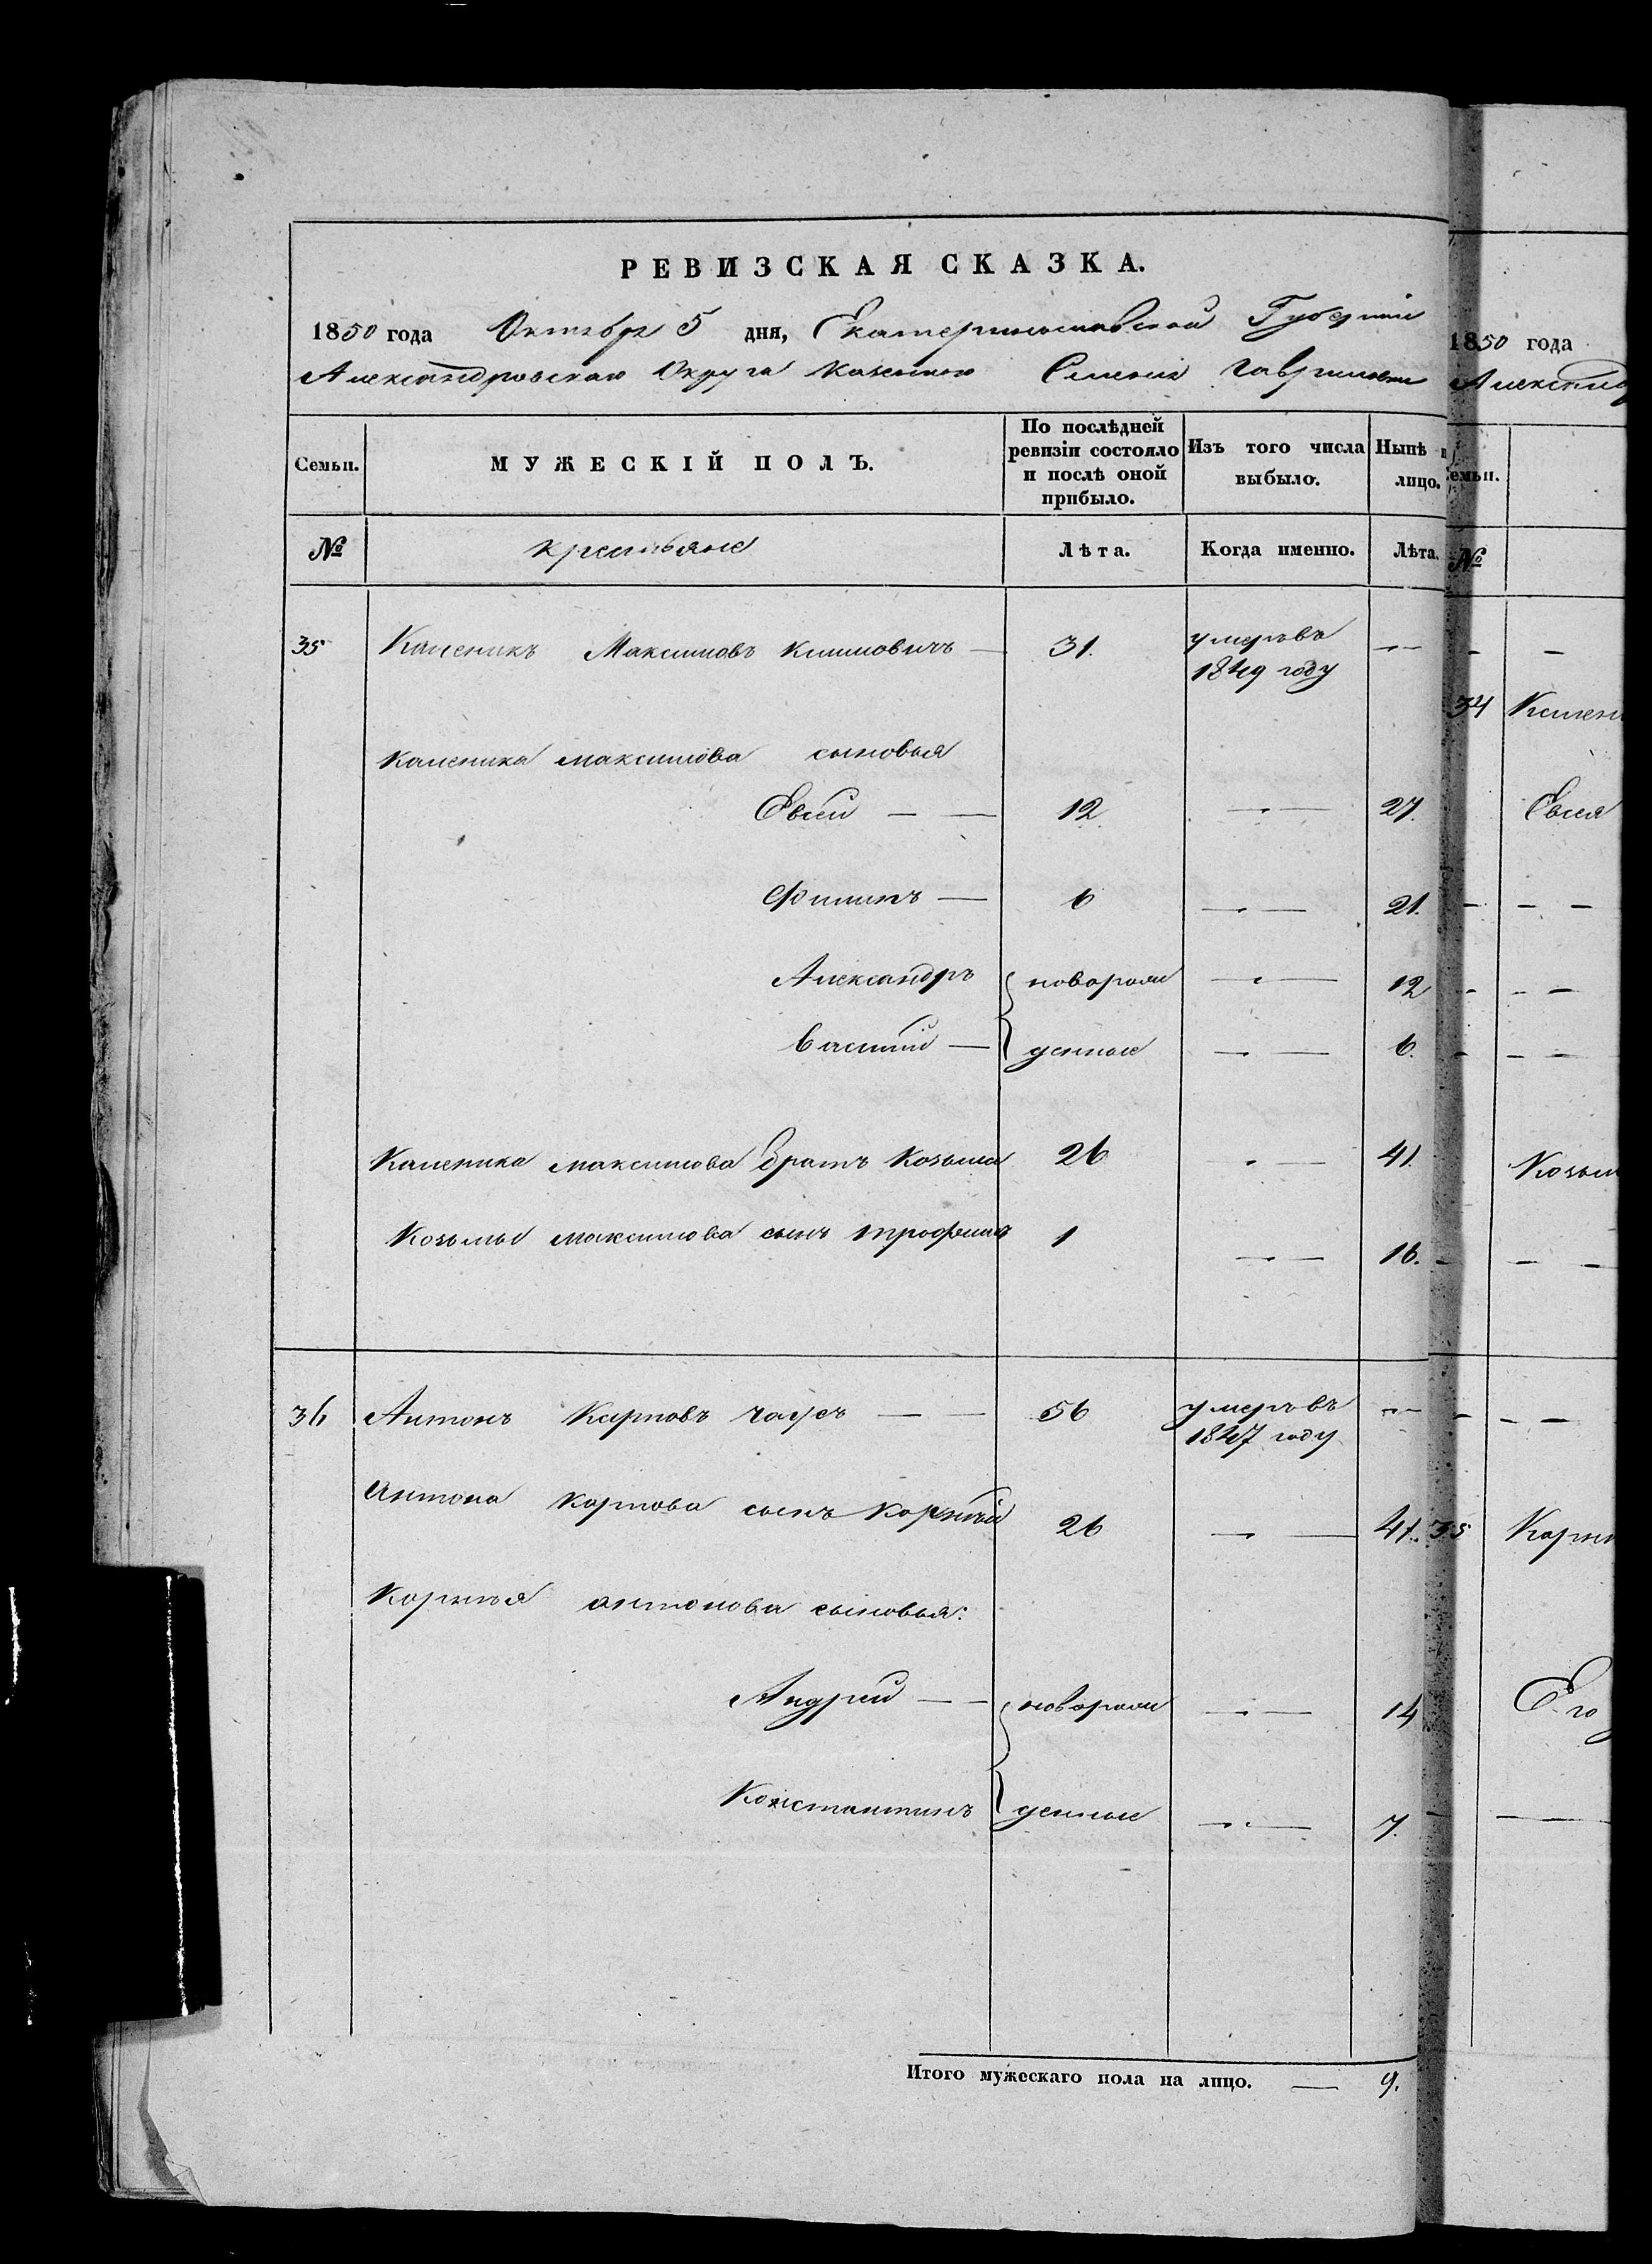 РЕВИЗСКАЯ СКАЗКА.
1850 года Октября 5 дня, Екатеринославской Губерніи
Александровскаго Округа Казеннаго Селенія Гавриловки
Семьи.
МУЖЕСКІЙ ПОЛЪ.
По послѣдней ревизіи состояло и послѣ оной прибыло.
Изъ того числа выбыло.
Нынѣ
лицо.
№ крестьяне Лѣта. Когда именно. Лѣта.
35 Каленикъ Максимовъ Климовичъ — 31. умеръ въ 1849 году —
Каленика Максимова сыновья
Евсей — — 12. — 27.
Филипъ — 6 — 21.
Александръ новорож — 12
Василій — денные — 6.
Каленика Максимова братъ Козьма 26 — 41.
Козьмы Максимова сынъ Трофимъ 1 — 16.
36 Антонъ Карповъ — — 56 умеръ въ 1847 году —
Антона Карпова сынъ Корнѣй 26 — 41.
Корнѣя Антонова сыновья:
Андрей — — новорож — 14
Константинъ денные — 7.
Итого мужескаго пола на лицо. — 9.
1850 года
Александр
Семьи.
№
34 Кален
Евсея
Козьм
35 Корн
Его